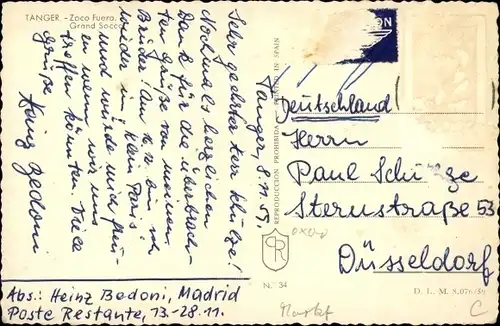 TANGER. - Zoco Fuera.
Grand Socco
Tanger, 8.11.59
Sehr geehrter Herr Schütze!
Nochmals herzlichen
Dank für die überbrach-
ten Grüße von meinem
Bruder! Am 2. bin ich
wieder in klein Paris
und würde mich freu
en wenn wir uns
treffen könnten. Viele
Grüße
Heinz Bedoni
Abs.: Heinz Bedoni, Madrid
Poste Restante, 13.-28.11.
REPRODUCCION PROHIBIDA
IN SPAIN
ON
Deutschland
Herrn
Paul Schütze
Sternstraße 53
Düsseldorf
N.° 34
D. L. M. 8.076/59
Markt
C